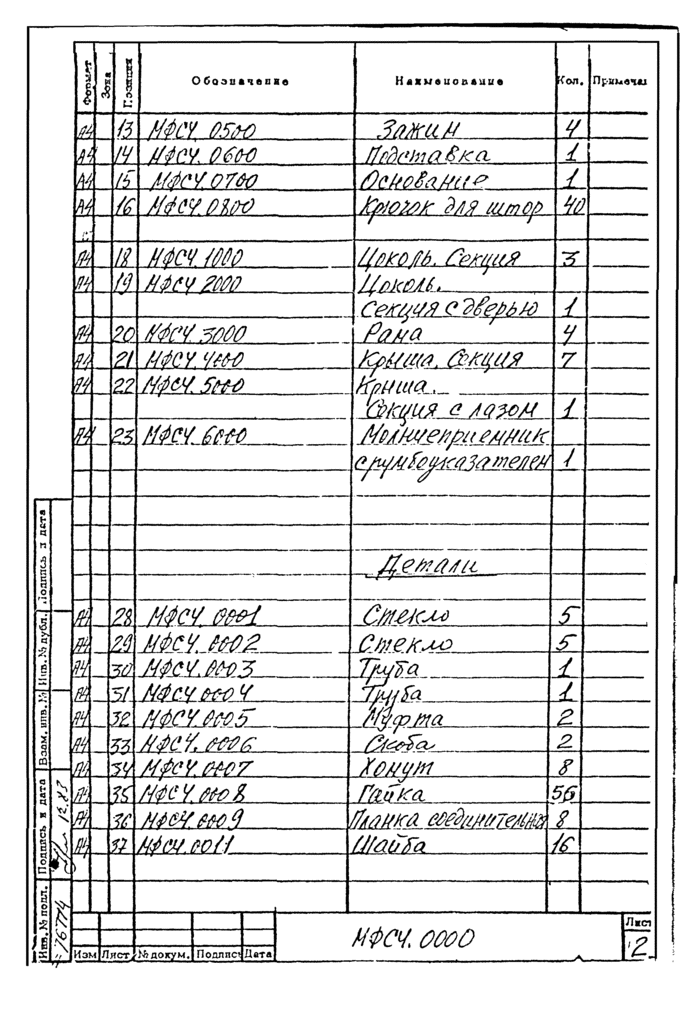 Формат Зона Позиция Обозначение Наименование Кол. Примечан
А4 13 МФСЧ. 0500 Зажим 4
А4 14 МФСЧ. 0600 Подставка 1
А4 15 МФСЧ. 0700 Основание 1
А4 16 МФСЧ. 0800 Крючок для штор 40
А4 18 МФСЧ. 1000 Цоколь. Секция 3
А4 19 МФСЧ 2000 Цоколь.
Секция с дверью 1
А4 20 МФСЧ. 3000 Рама 4
А4 21 МФСЧ. 4000 Крыша. Секция 7
А4 22 МФСЧ. 5000 Крыша.
Секция с лазом 1
А4 23 МФСЧ. 6000 Молниеприемник
с румбоуказателем 1
Детали
А4 28 МФСЧ. 0001 Стекло 5
А4 29 МФСЧ. 0002 Стекло 5
А4 30 МФСЧ. 0003 Труба 1
А4 31 МФСЧ 0004 Труба 1
А4 32 МФСЧ. 0005 Муфта 2
А4 33 МФСЧ. 0006 Скоба 2
А4 34 МФСЧ. 0007 Хомут 8
А4 35 МФСЧ. 0008 Гайка 56
А4 36 МФСЧ. 0009 Планка соединительная 8
А4 37 МФСЧ. 0011 Шайба 16
Инв. № подл. Подпись и дата Взам. инв. № Инв. № дубл. Подпись и дата
76774 12.83
МФСЧ. 0000
Лист
2
Изм Лист № докум. Подпись Дата